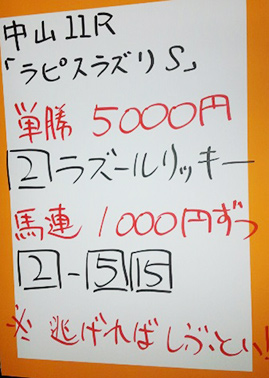 中山11R
「ラピスラズリS」
単勝 5000円
2 ラズールリッキー
馬連 1000円ずつ
2-5 15
※逃げればしぶとい!